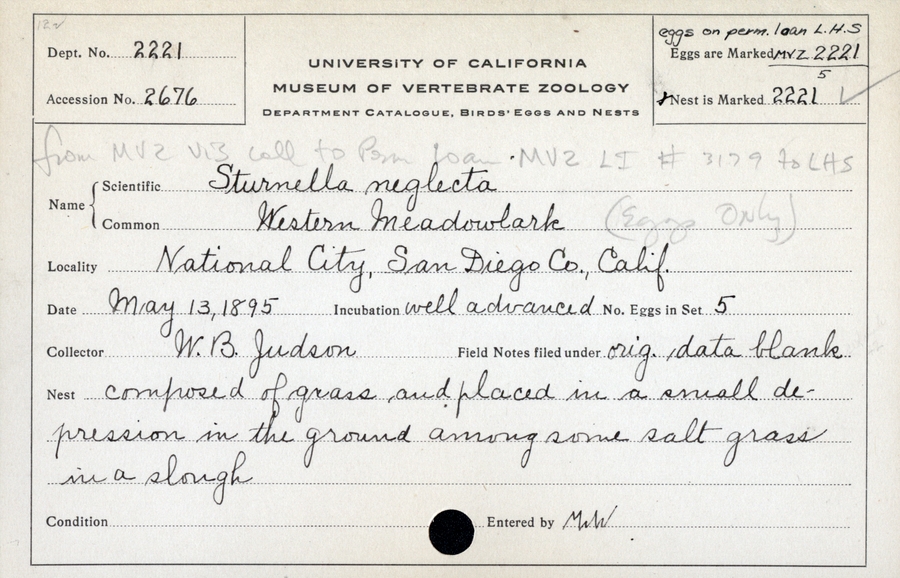 12
eggs on perm. loan L.H.S
Dept. No. 2221
Eggs are Marked MVZ 2221
5
UNIVERSITY OF CALIFORNIA
MUSEUM OF VERTEBRATE ZOOLOGY
DEPARTMENT CATALOGUE, BIRDS' EGGS AND NESTS
Accession No. 2676
Nest is Marked 2221
from MVZ coll to Perm loan. MVZ LI # 3179 to LHS
Name
Scientific Sturnella neglecta
Common Western Meadowlark (Eggs Only)
Locality National City, San Diego Co., Calif.
Date May 13, 1895 Incubation well advanced No. Eggs in Set 5
Collector W. B. Judson Field Notes filed under orig. data blank
Nest composed of grass and placed in a small de-
pression in the ground among some salt grass
in a slough
Condition Entered by